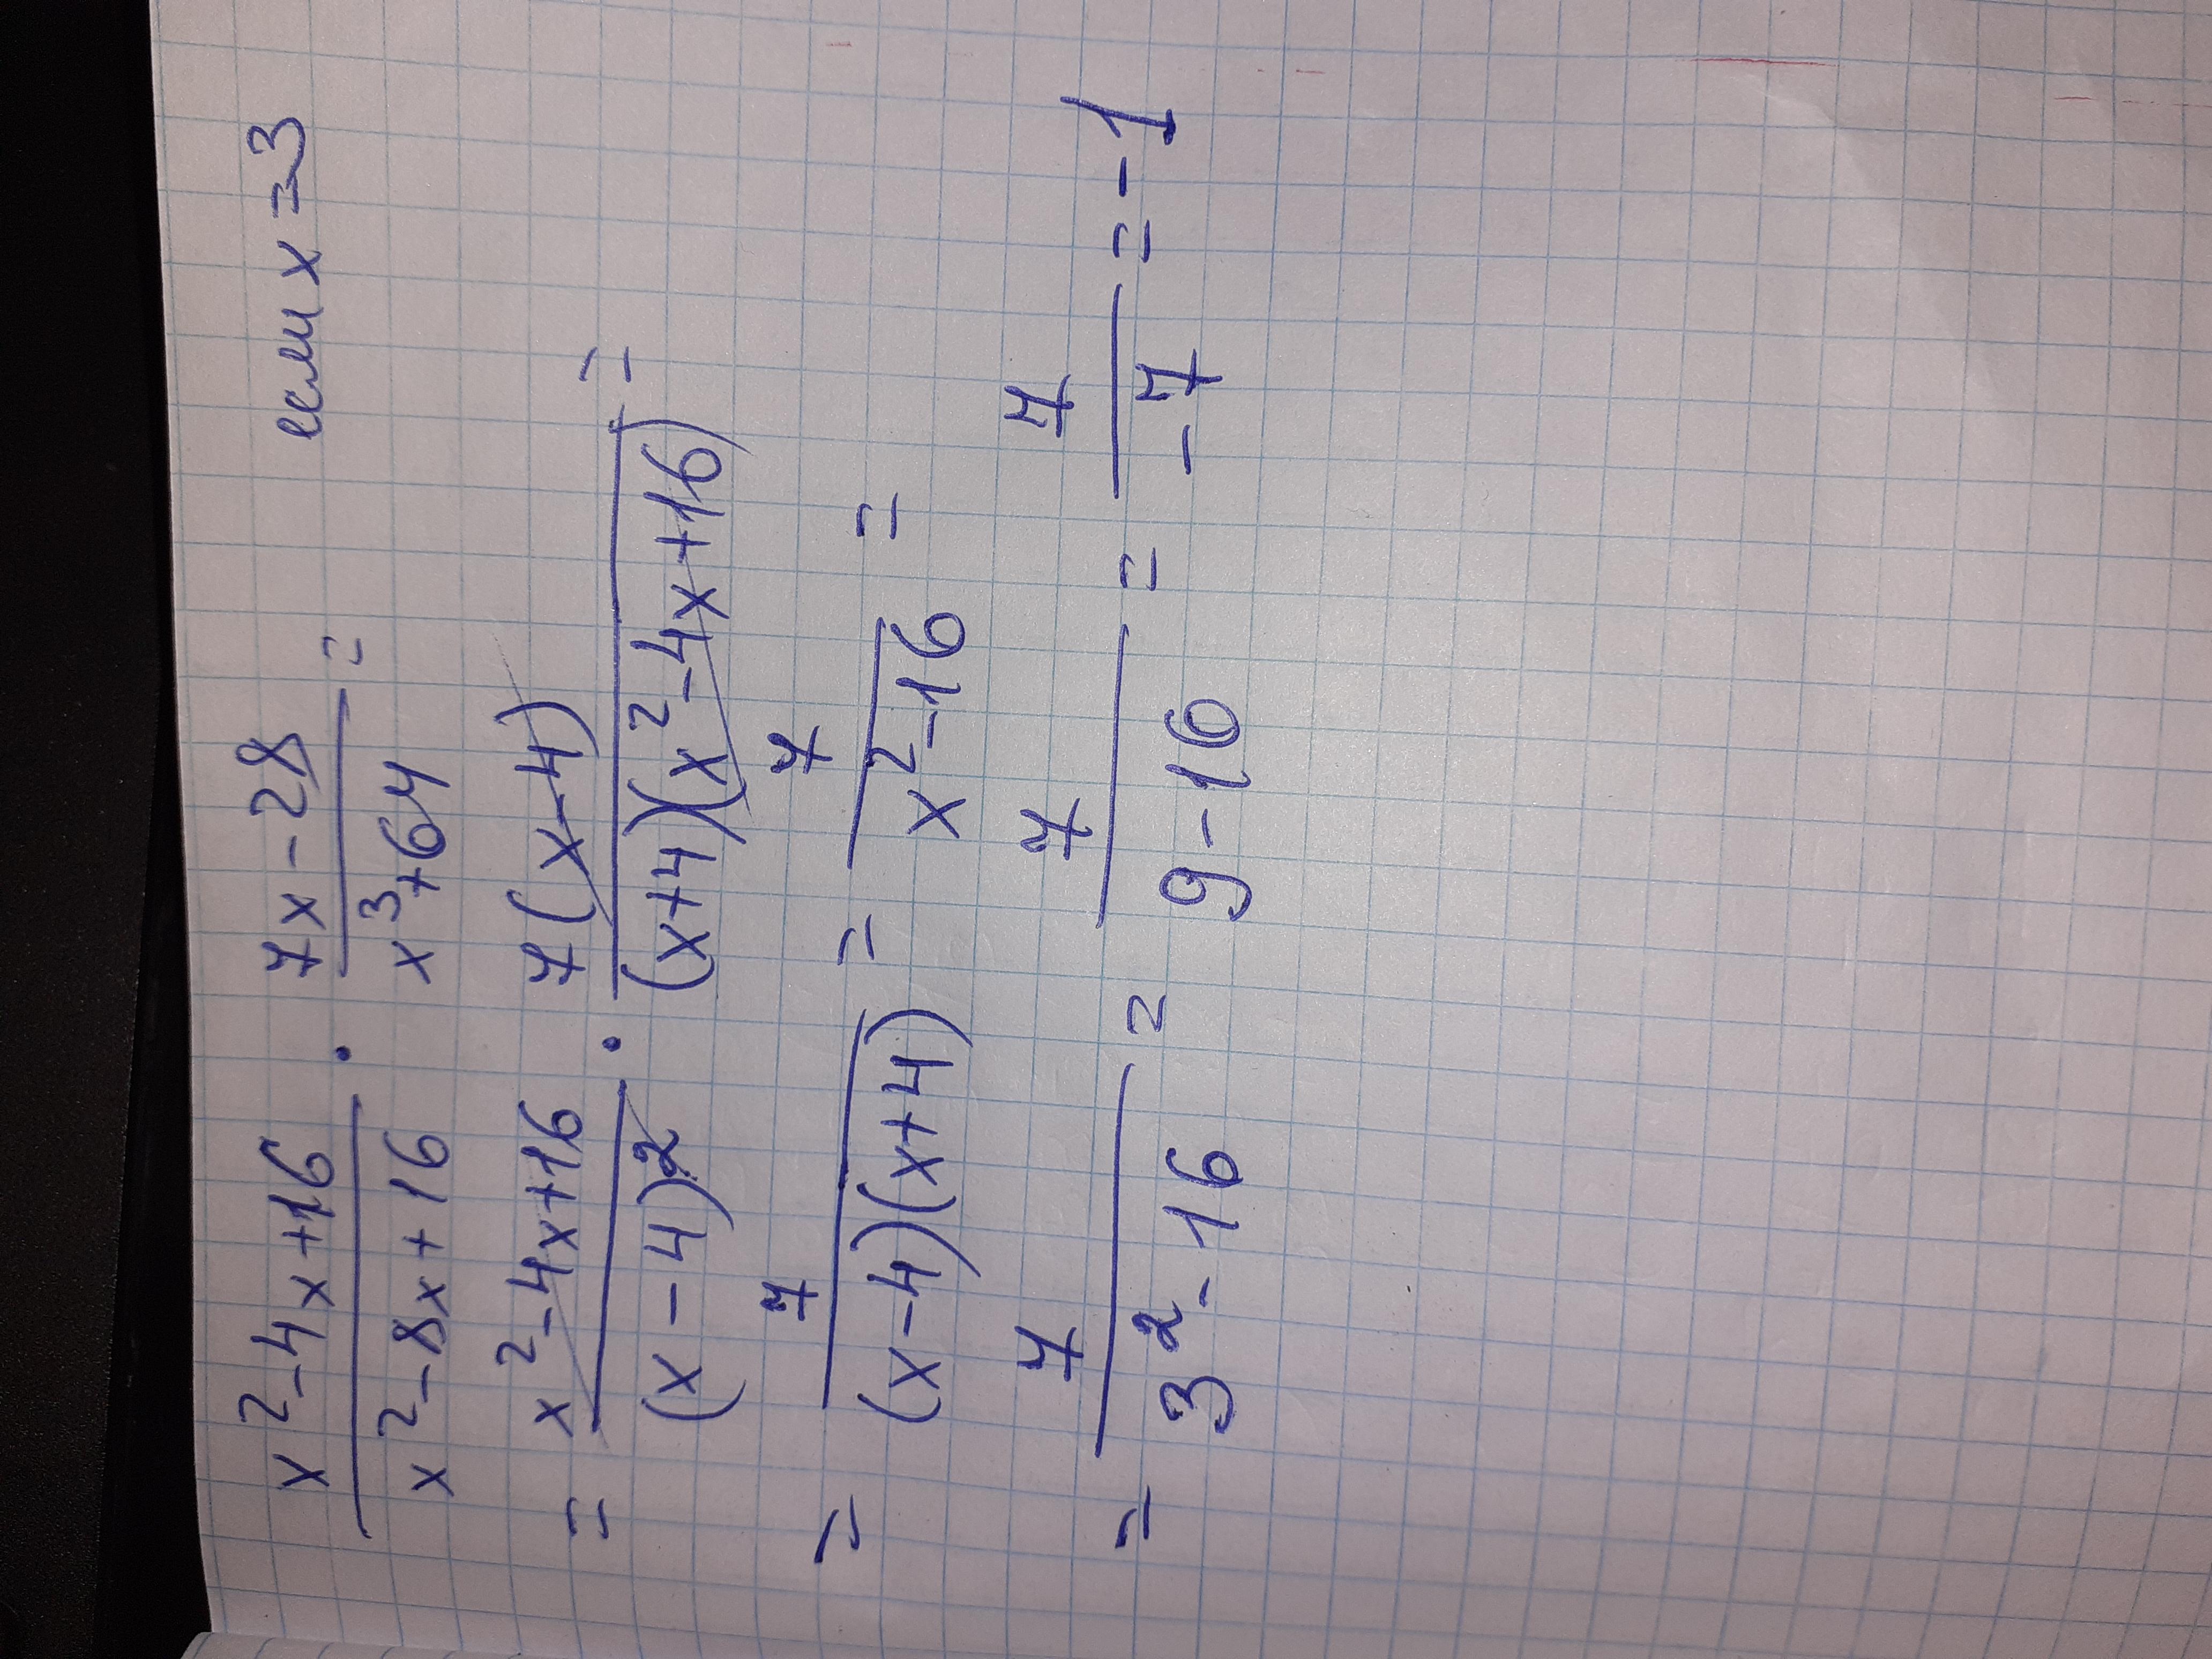 x²-4x+16/x²-8x+16 · 7x-28/x³+64 = если x=3
= x²-4x+16/(x-4)² · 7(x-4)/(x+4)(x²-4x+16) =
= 7/(x-4)(x+4) = 7/x²-16 =
= 7/3²-16 = 7/9-16 = 7/-7 = -1